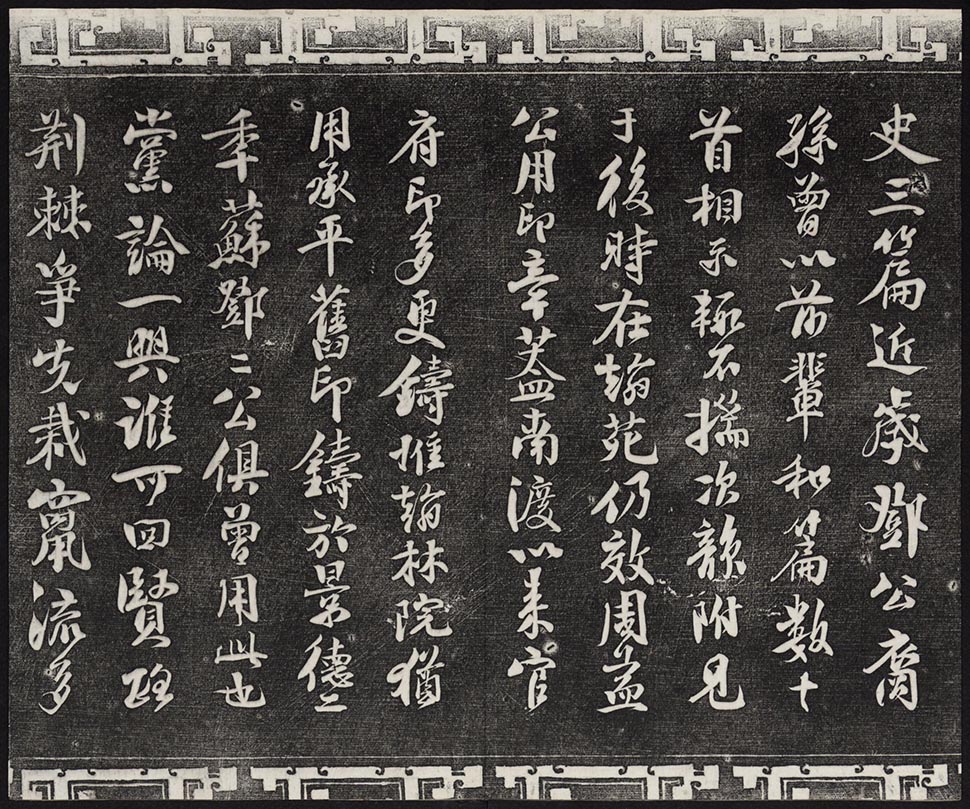 史三篇近歲鄧公裔
孫曾以前輩和篇數十
首相示輒不揣次韻附見
于後時在翰苑仍效周益
公用印章蓋南渡以来官
府印多更鑄惟翰林院猶
用承平舊印鑄於景德二
年蘇鄧二公俱曾用此也
黨論一興誰可回賢路
荆棘爭先栽竄流多